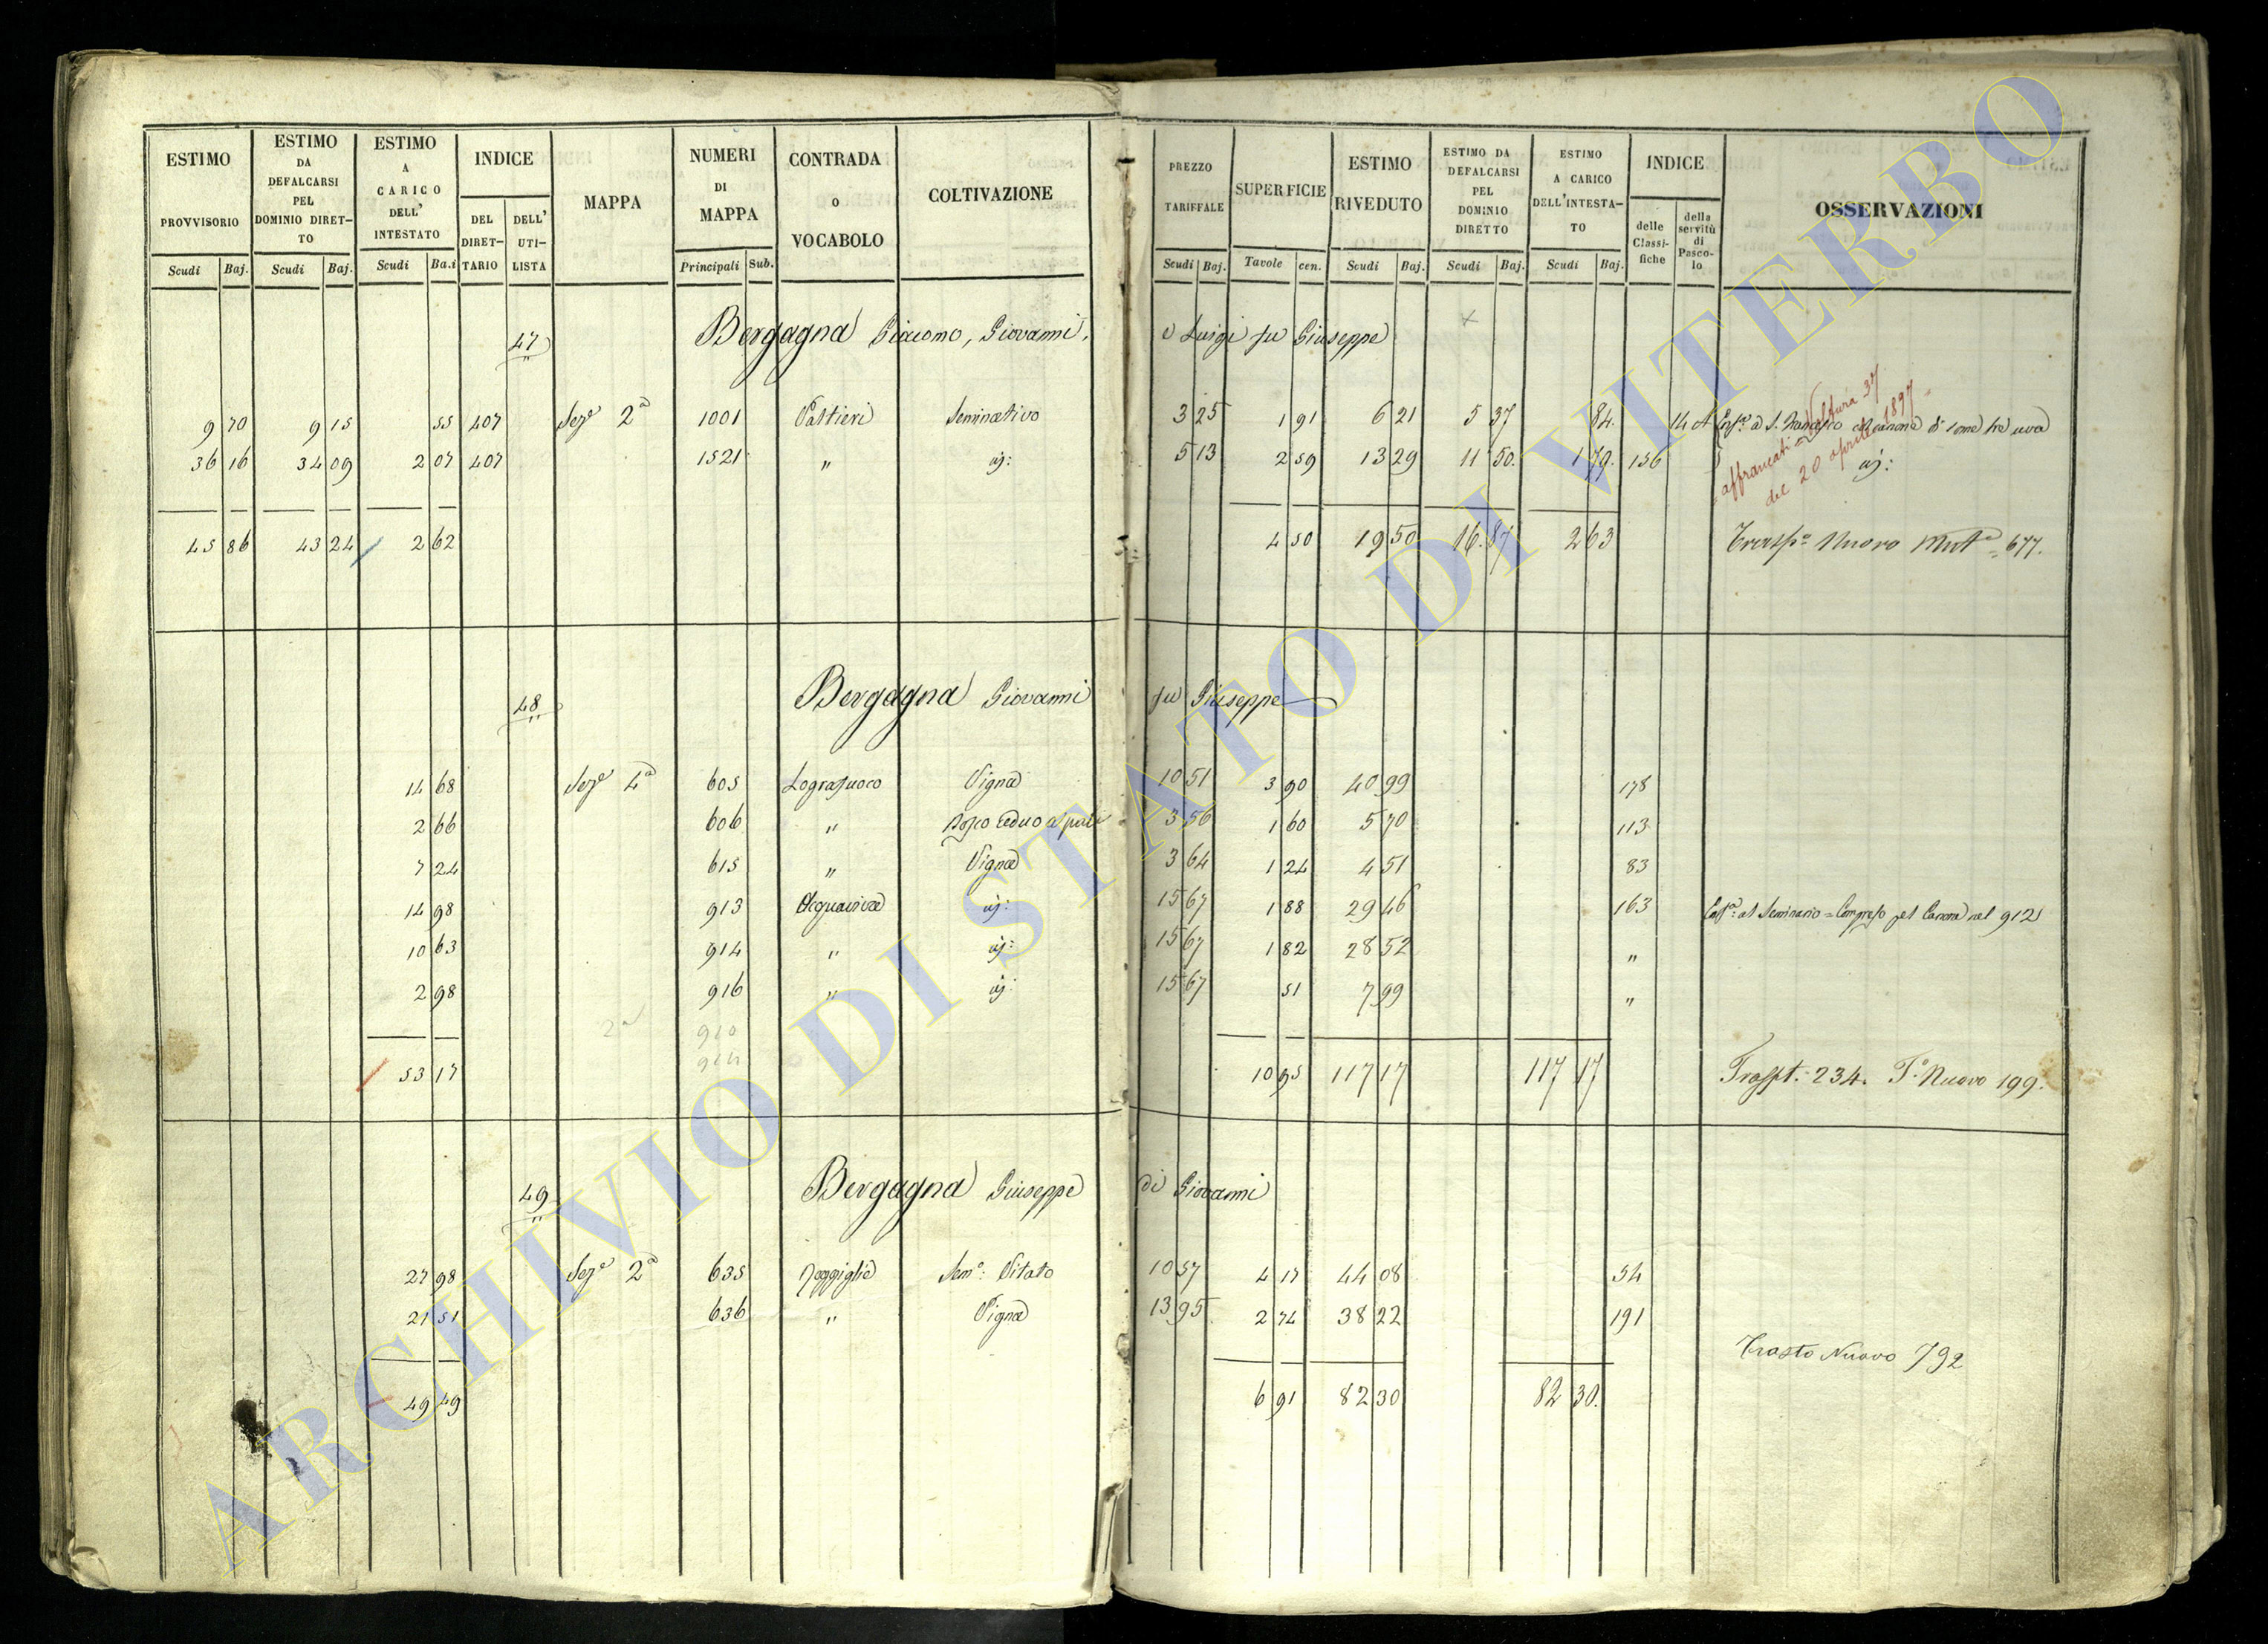 ESTIMO PROVVISORIO | ESTIMO DA DEFALCARSI PEL DOMINIO DIRETTO | ESTIMO A CARICO DELL' INTESTATO | INDICE | MAPPA | NUMERI DI MAPPA | CONTRADA O VOCABOLO | COLTIVAZIONE | PREZZO TARIFFALE | SUPERFICIE | ESTIMO RIVEDUTO | ESTIMO DA DEFALCARSI PEL DOMINIO DIRETTO | ESTIMO A CARICO DELL'INTESTATO | INDICE | OSSERVAZIONI
DEL DIRETTARIO | DELL' UTILISTA | delle Classifiche | della servitù di Pascolo
Scudi | Baj. | Scudi | Baj. | Scudi | Ba.i | Principali | Sub. | Scudi | Baj. | Tavole | cen. | Scudi | Baj. | Scudi | Baj. | Scudi | Baj.
47 Bergagna Giacomo, Giovanni, e Luigi fu Giuseppe
9 70 | 9 15 | 55 | 407 | Seze 2a | 1001 | Pallieri | Seminativo | 3 25 | 1 91 | 6 21 | 5 37 | 84. | 14 A | a S. Francesco
36 16 | 34 09 | 2 07 | 407 | 1521 | " | id: | 5 13 | 2 59 | 13 29 | 11 50. | 1 79. | 156 | id:
affrancati Voltura 37
del 20 aprile 1897
45 86 | 43 24 | 2 62 | 4 50 | 19 50 | 16.87 | 2 63 | Traspo Nuovo Muta 677.
48 Bergagna Giovanni fu Giuseppe
14 68 | Seze 4a | 605 | Lografuoco | Vigna | 10 51 | 3 90 | 40 99 | 178
2 66 | 606 | " | Bosco ceduo a pali | 3 56 | 1 60 | 5 70 | 113
7 24 | 615 | " | Vigna | 3 64 | 1 24 | 4 51 | 83
14 98 | 913 | Acquaviva | id: | 15 67 | 1 88 | 29 46 | 163 | al Seminario = Compreso pel Canone nel 912
10 63 | 914 | " | id: | 15 67 | 1 82 | 28 52 | "
2 98 | 916 | " | id: | 15 67 | 51 | 7 99 | "
2a 910
53 17 | 10 95 | 117 17 | 117 17 | Traspt. 234. To Nuovo 199.
49 Bergagna Giuseppe di Giovanni
27 98 | Seze 2a | 635 | Poggiglie | Semo: Vitato | 10 57 | 4 17 | 44 08 | 54
21 51 | 636 | " | Vigna | 13 95 | 2 74 | 38 22 | 191
Trasto Nuovo 792
49 49 | 6 91 | 82 30 | 82 30.
ARCHIVIO DI STATO DI VITERBO